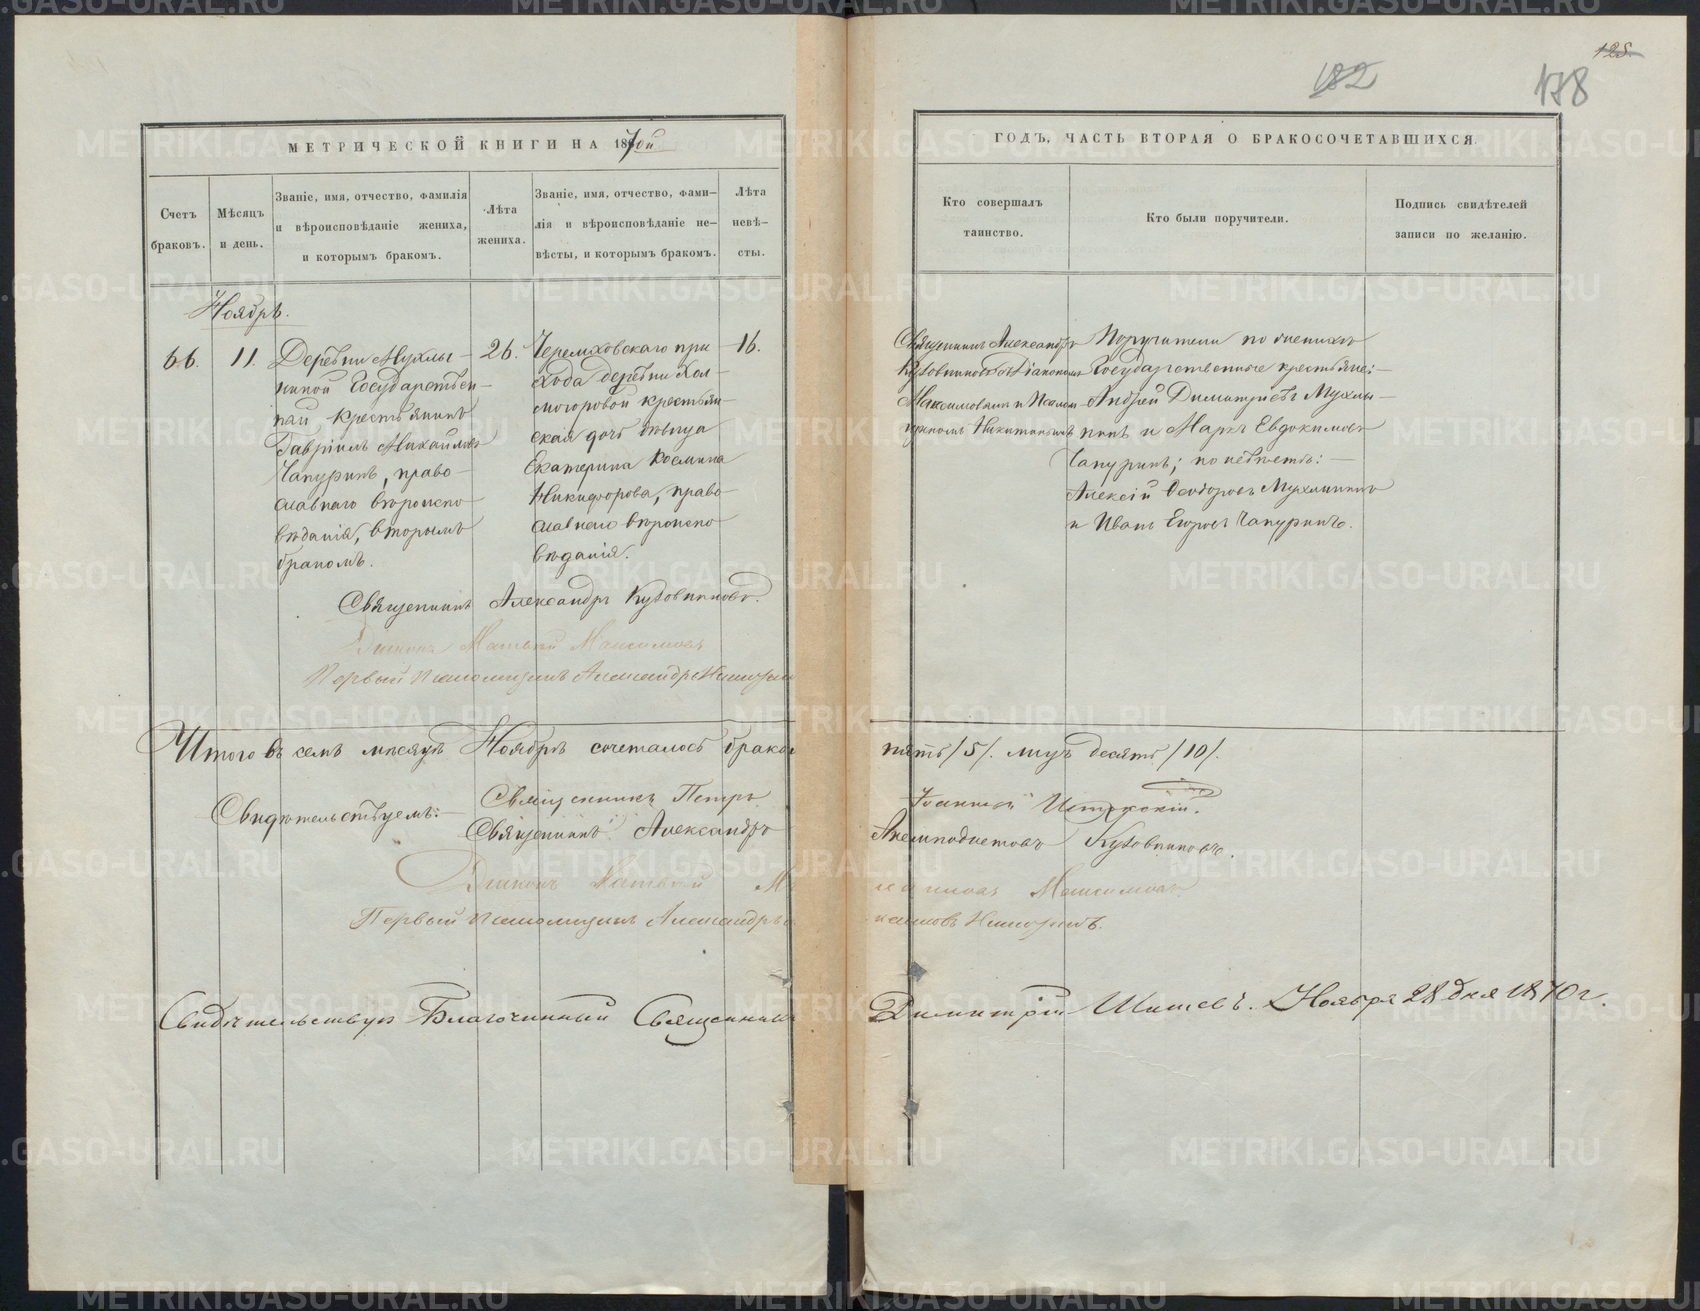 125.
182
178
МЕТРИЧЕСКОЙ КНИГИ НА 1870й
ГОДЪ, ЧАСТЬ ВТОРАЯ О БРАКОСОЧЕТАВШИХСЯ.
Счетъ браковъ.
Мѣсяцъ и день.
Званіе, имя, отчество, фамилія
и вѣроисповѣданіе жениха,
и которымъ бракомъ.
Лѣта
жениха.
Званіе, имя, отчество, фами-
лія и вѣроисповѣданіе не-
вѣсты, и которымъ бракомъ.
Лѣта
невѣ-
сты.
Кто совершалъ
таинство.
Кто были поручители.
Подпись свидѣтелей
записи по желанію.
Ноябрь.
66.
11.
Деревни Мухлы-
ниной Государствен-
ный крестьянинъ
Гавріилъ Михайловъ
Чапуринъ, право-
славнаго вѣроиспо-
вѣданія, вторымъ
бракомъ.
26.
Черемховскаго при-
хода деревни Хол-
могоровой крестьян-
ская дочь дѣвица
Екатерина Космина
Никифорова, право-
славнаго вѣроиспо-
вѣданія.
16.
Священникъ Александръ
Кузовниковъ съ Діакономъ
Максимовымъ и Псалом-
щикомъ
Поручители по женихѣ
Государственные крестьяне:
Андрей Димитріевъ Мухлы-
нинъ и Маркъ Евдокимовъ
Чапуринъ; по невѣстѣ: —
Алексій Ѳеодоровъ Мухлынинъ
и Иванъ Егоровъ Чапуринъ.
Священникъ Александръ Кузовниковъ.
Діаконъ Матвей Максимовъ
Первый Псаломщикъ Александръ
Итого въ семъ мѣсяцѣ Ноябрѣ сочеталось браковъ пять /5/. лицъ десять /10/.
Свидѣтельствуемъ:
Священникъ Петръ Іоанновъ
Священникъ Александръ Кузовниковъ.
Діаконъ Матвей Максимовъ
Первый Псаломщикъ Александръ
Свидѣтельствую Благочинный Священникъ Димитрій Шишевъ. Ноября 28 дня 1870 г.
METRIKI.GASO-URAL.RU